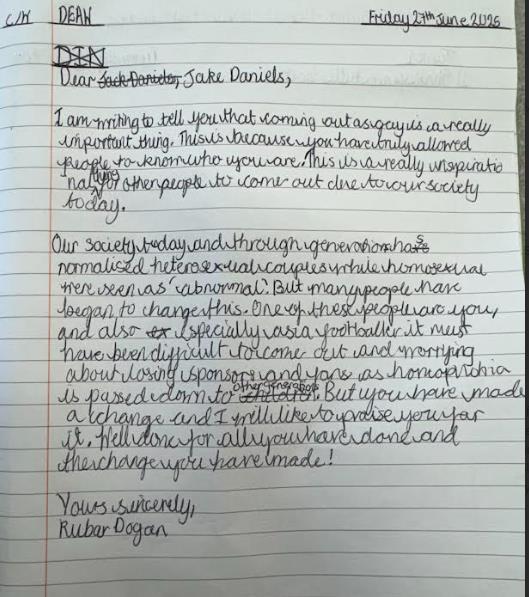 C/W DEAW Friday 27th June 2025
DIN
Dear Jack Daniels, Jake Daniels,
I am writing to tell you that coming out as gay is a really
important thing. This is because you have truly allowed
people to know who you are. This is a really inspiratio
nal for other people to come out due to our society
today.
Our society today and through generations has
normalised heterosexual couples while homosexual
were seen as 'abnormal'. But many people have
began to change this. One of these people are you,
and also especially as a footballer it must
have been difficult to come out and worrying
about losing sponsors and fans as homophobia
is passed down to children other generations. But you have made
a change and I will like to praise you for
it. Well done for all you have done and
the change you have made!
Yours sincerely,
Rubar Dogan